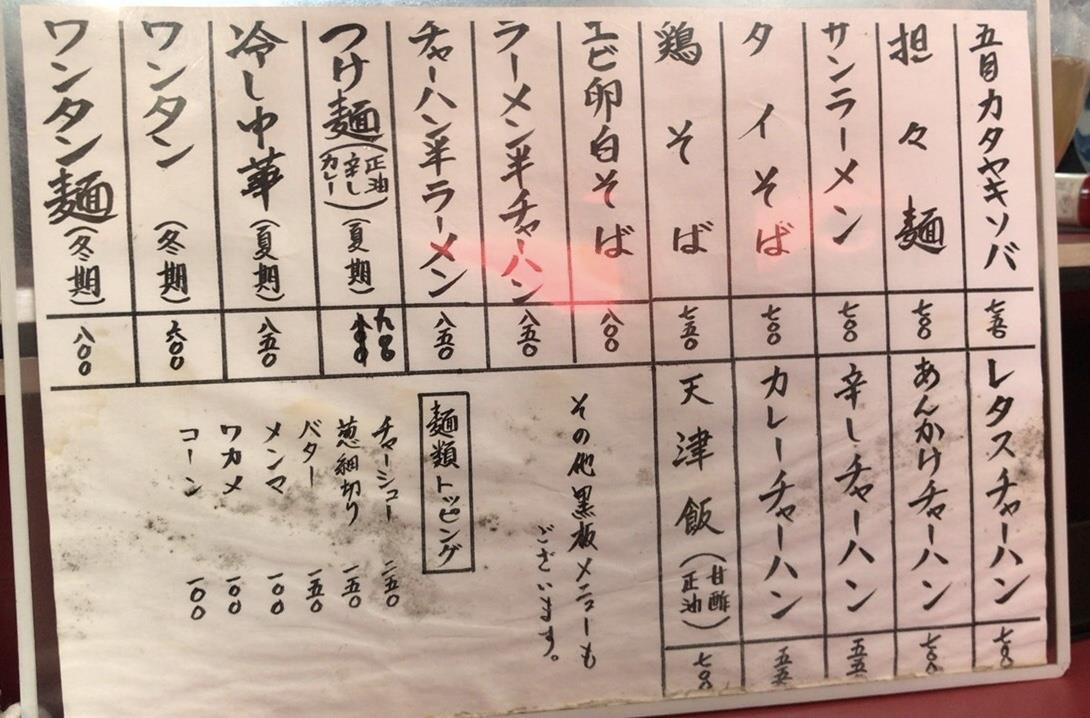 五目カタヤキソバ 七五〇
担々麺 七〇〇
サンラーメン 七〇〇
タイそば 七〇〇
鶏そば 七五〇
エビ卵白そば 八〇〇
ラーメン半チャーハン 八五〇
チャーハン半ラーメン 八五〇
つけ麺(正油 辛し カレー)(夏期) 九〇〇
冷し中華(夏期) 八五〇
ワンタン(冬期) 六〇〇
ワンタン麺(冬期) 八〇〇
レタスチャーハン 七〇〇
あんかけチャーハン 七〇〇
辛しチャーハン 五五〇
カレーチャーハン 五五〇
天津飯(甘酢 正油) 七〇〇
その他黒板メニューも
ございます。
麺類トッピング
チャーシュー 二五〇
葱細切り 一五〇
バター 一五〇
メンマ 一〇〇
ワカメ 一〇〇
コーン 一〇〇